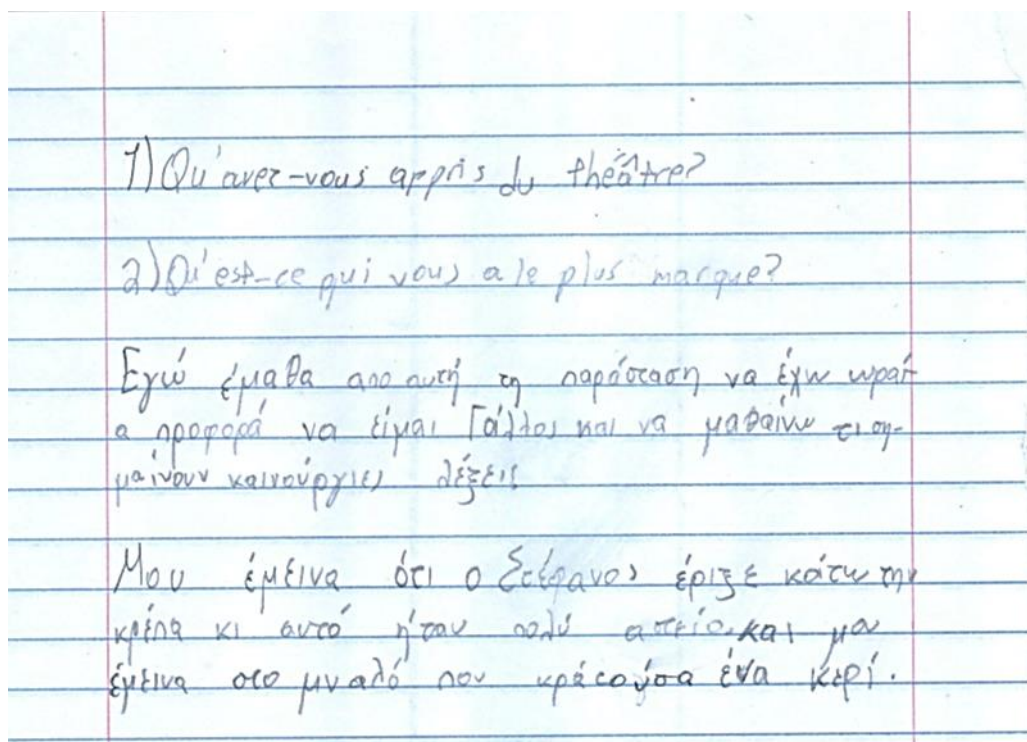 1) Qu'avez-vous appris du théâtre?
2) Qu'est-ce qui vous a le plus marque?
Εγώ έμαθα απο αυτή τη παράσταση να έχω ωραί-
α προφορά να είμαι Γάλλος και να μαθαίνω τι ση-
μαίνουν καινούργιες λέξεις
Μου έμεινα ότι ο Στέφανος έριξε κάτω την
κρέπα κι αυτό ήταν πολύ αστείο. και μου
έμεινα στο μυαλό που κράτούσα ένα κερί.